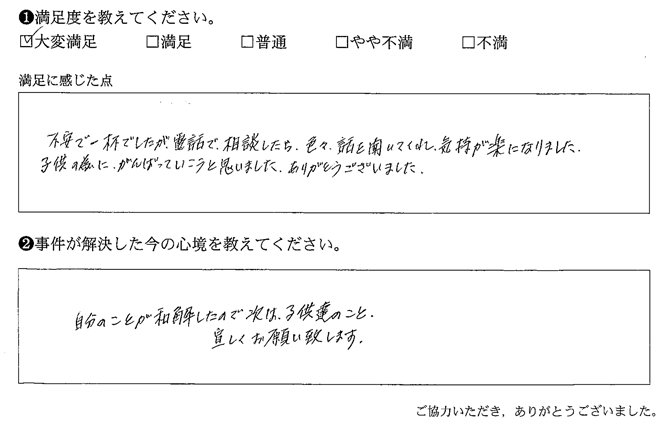 ❶満足度を教えてください。
☑大変満足 □満足 □普通 □やや不満 □不満
満足に感じた点
不安で一杯でしたが、電話で、相談したら、色々、話を聞いてくれ、気持が楽になりました。
子供の為に、がんばっていこうと思いました。ありがとうございました。
❷事件が解決した今の心境を教えてください。
自分のことが和解したので次は、子供達のこと、
宜しくお願い致します。
ご協力いただき，ありがとうございました。